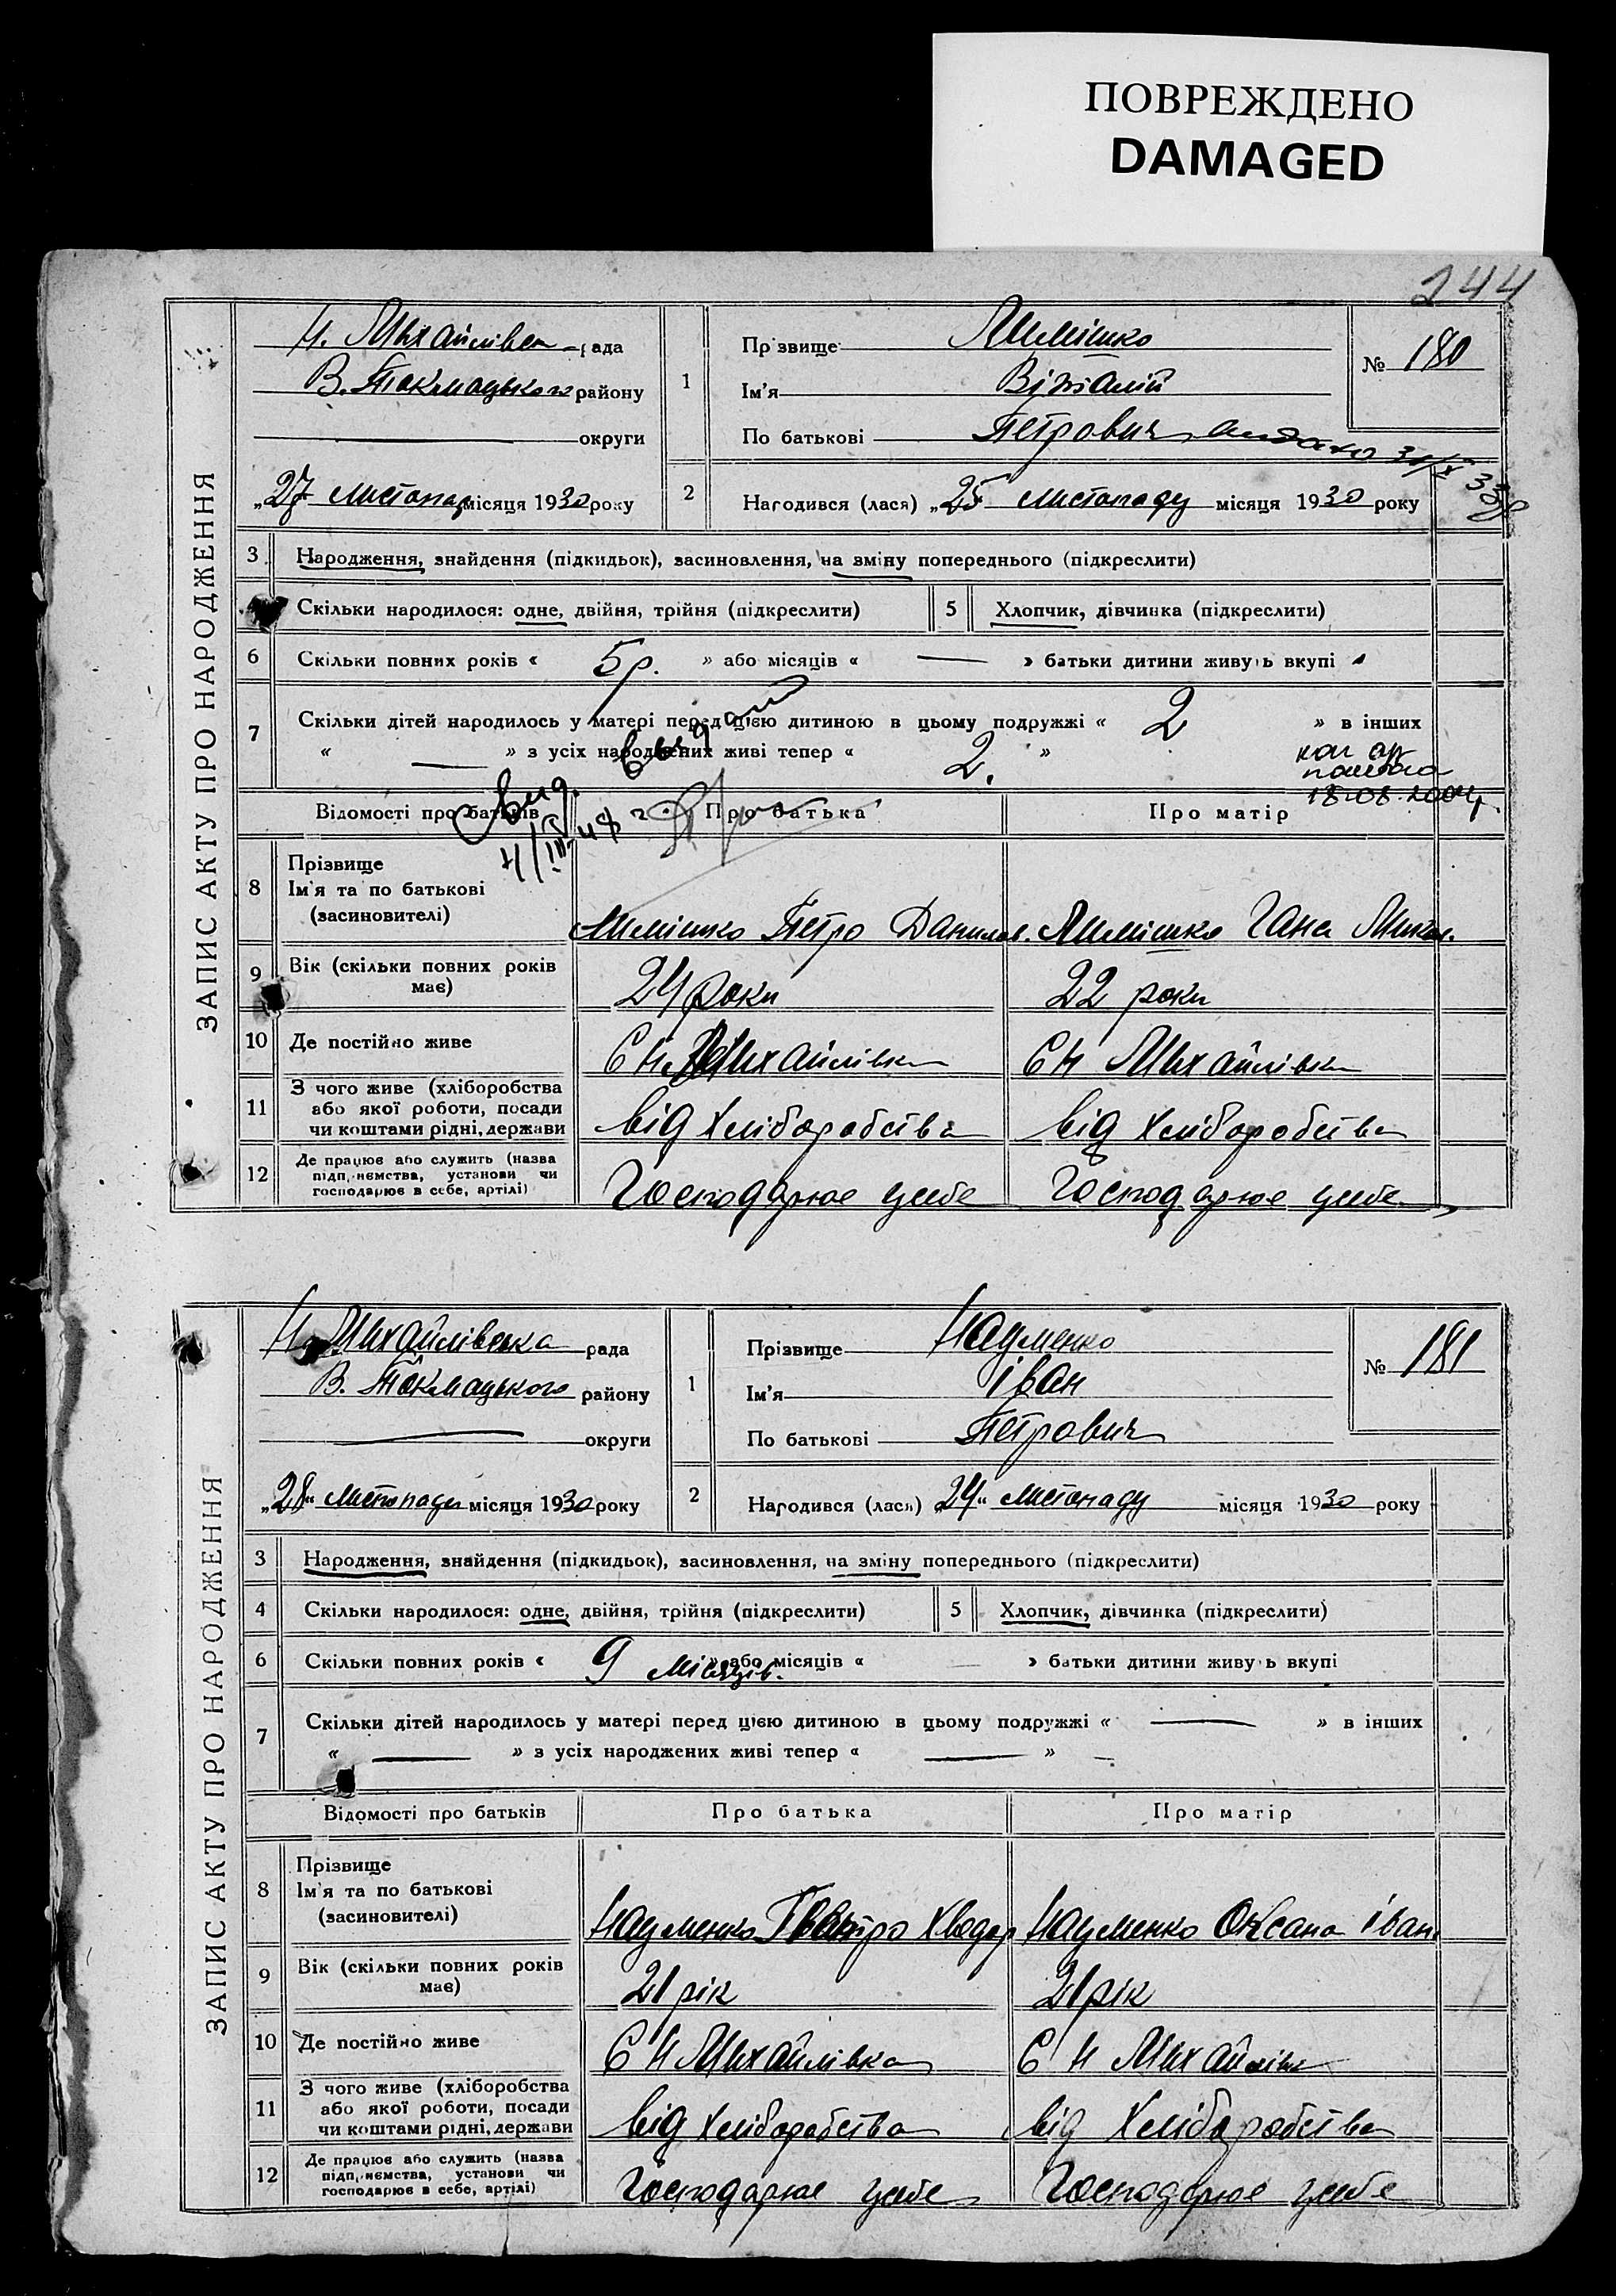 ПОВРЕЖДЕНО
DAMAGED
244
ЗАПИС АКТУ ПРО НАРОДЖЕННЯ
Н. Михайлівсь рада
В. Токмацького району
округи
„27 Листопад місяця 1930 року
1
Прізвище
Ім'я Віталій
По батькові Петрович
№ 180
2
Народився (лася) „25 Листопаду місяця 1930 року
3 Народження, знайдення (підкидьок), засиновлення, на зміну попереднього (підкреслити)
Скільки народилося: одне, двійня, трійня (підкреслити) 5 Хлопчик, дівчинка (підкреслити)
6 Скільки повних років « 5 р. » або місяців « — » батьки дитини живуть вкупі
7 Скільки дітей народилось у матері перед цією дитиною в цьому подружжі « 2 » в інших
« — » з усіх народжених живі тепер « 2. »
18.08.2004
Відомості про батьків Про батька Про матір
8 Прізвище
Ім'я та по батькові
(засиновителі)
Петро Данилов. Гана Микол.
9 Вік (скільки повних років має) 24 роки 22 роки
10 Де постійно живе С Н Михайлівка С Н Михайлівка
11 З чого живе (хліборобства
або якої роботи, посади
чи коштами рідні, держави
від Хліборобства від Хліборобства
12 Де працює або служить (назва
підприємства, установи чи
господарює в себе, артілі)
Господарює усебе Господарює усебе
ЗАПИС АКТУ ПРО НАРОДЖЕННЯ
Н. Михайлівська рада
В. Токмацького району
округи
„28" Листопада місяця 1930 року
1
Прізвище Науменко
Ім'я Іван
По батькові Петрович
№ 181
2
Народився (лася) „24" Листопаду місяця 1930 року
3 Народження, знайдення (підкидьок), засиновлення, на зміну попереднього (підкреслити)
4 Скільки народилося: одне, двійня, трійня (підкреслити) 5 Хлопчик, дівчинка (підкреслити)
6 Скільки повних років « 9 місяців. » або місяців « — » батьки дитини живуть вкупі
7 Скільки дітей народилось у матері перед цією дитиною в цьому подружжі « — » в інших
« — » з усіх народжених живі тепер « — » —
Відомості про батьків Про батька Про матір
8 Прізвище
Ім'я та по батькові
(засиновителі)
Науменко Петро Хведор Науменко Оксана Іван.
9 Вік (скільки повних років має) 21 рік 21 рік
10 Де постійно живе С Н Михайлівка С Н Михайлівка
11 З чого живе (хліборобства
або якої роботи, посади
чи коштами рідні, держави
від Хліборобства від Хліборобства
12 Де працює або служить (назва
підприємства, установи чи
господарює в себе, артілі)
Господарює усебе Господарює усебе